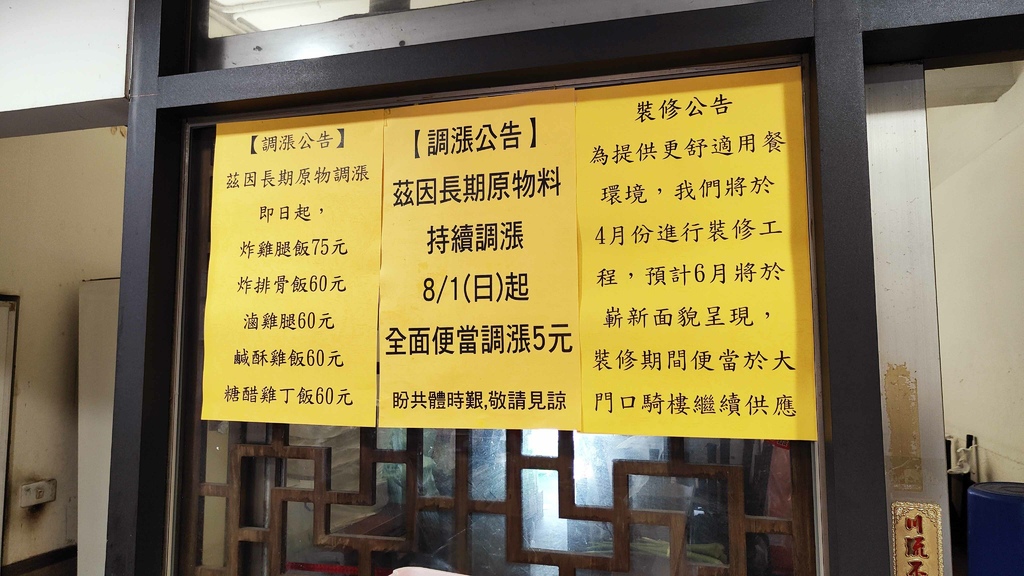 【調漲公告】
茲因長期原物調漲
即日起，
炸雞腿飯75元
炸排骨飯60元
滷雞腿60元
鹹酥雞飯60元
糖醋雞丁飯60元
【調漲公告】
茲因長期原物料
持續調漲
8/1(日)起
全面便當調漲5元
盼共體時艱,敬請見諒
裝修公告
為提供更舒適用餐
環境，我們將於
4月份進行裝修工
程，預計6月將於
嶄新面貌呈現，
裝修期間便當於大
門口騎樓繼續供應
川流不